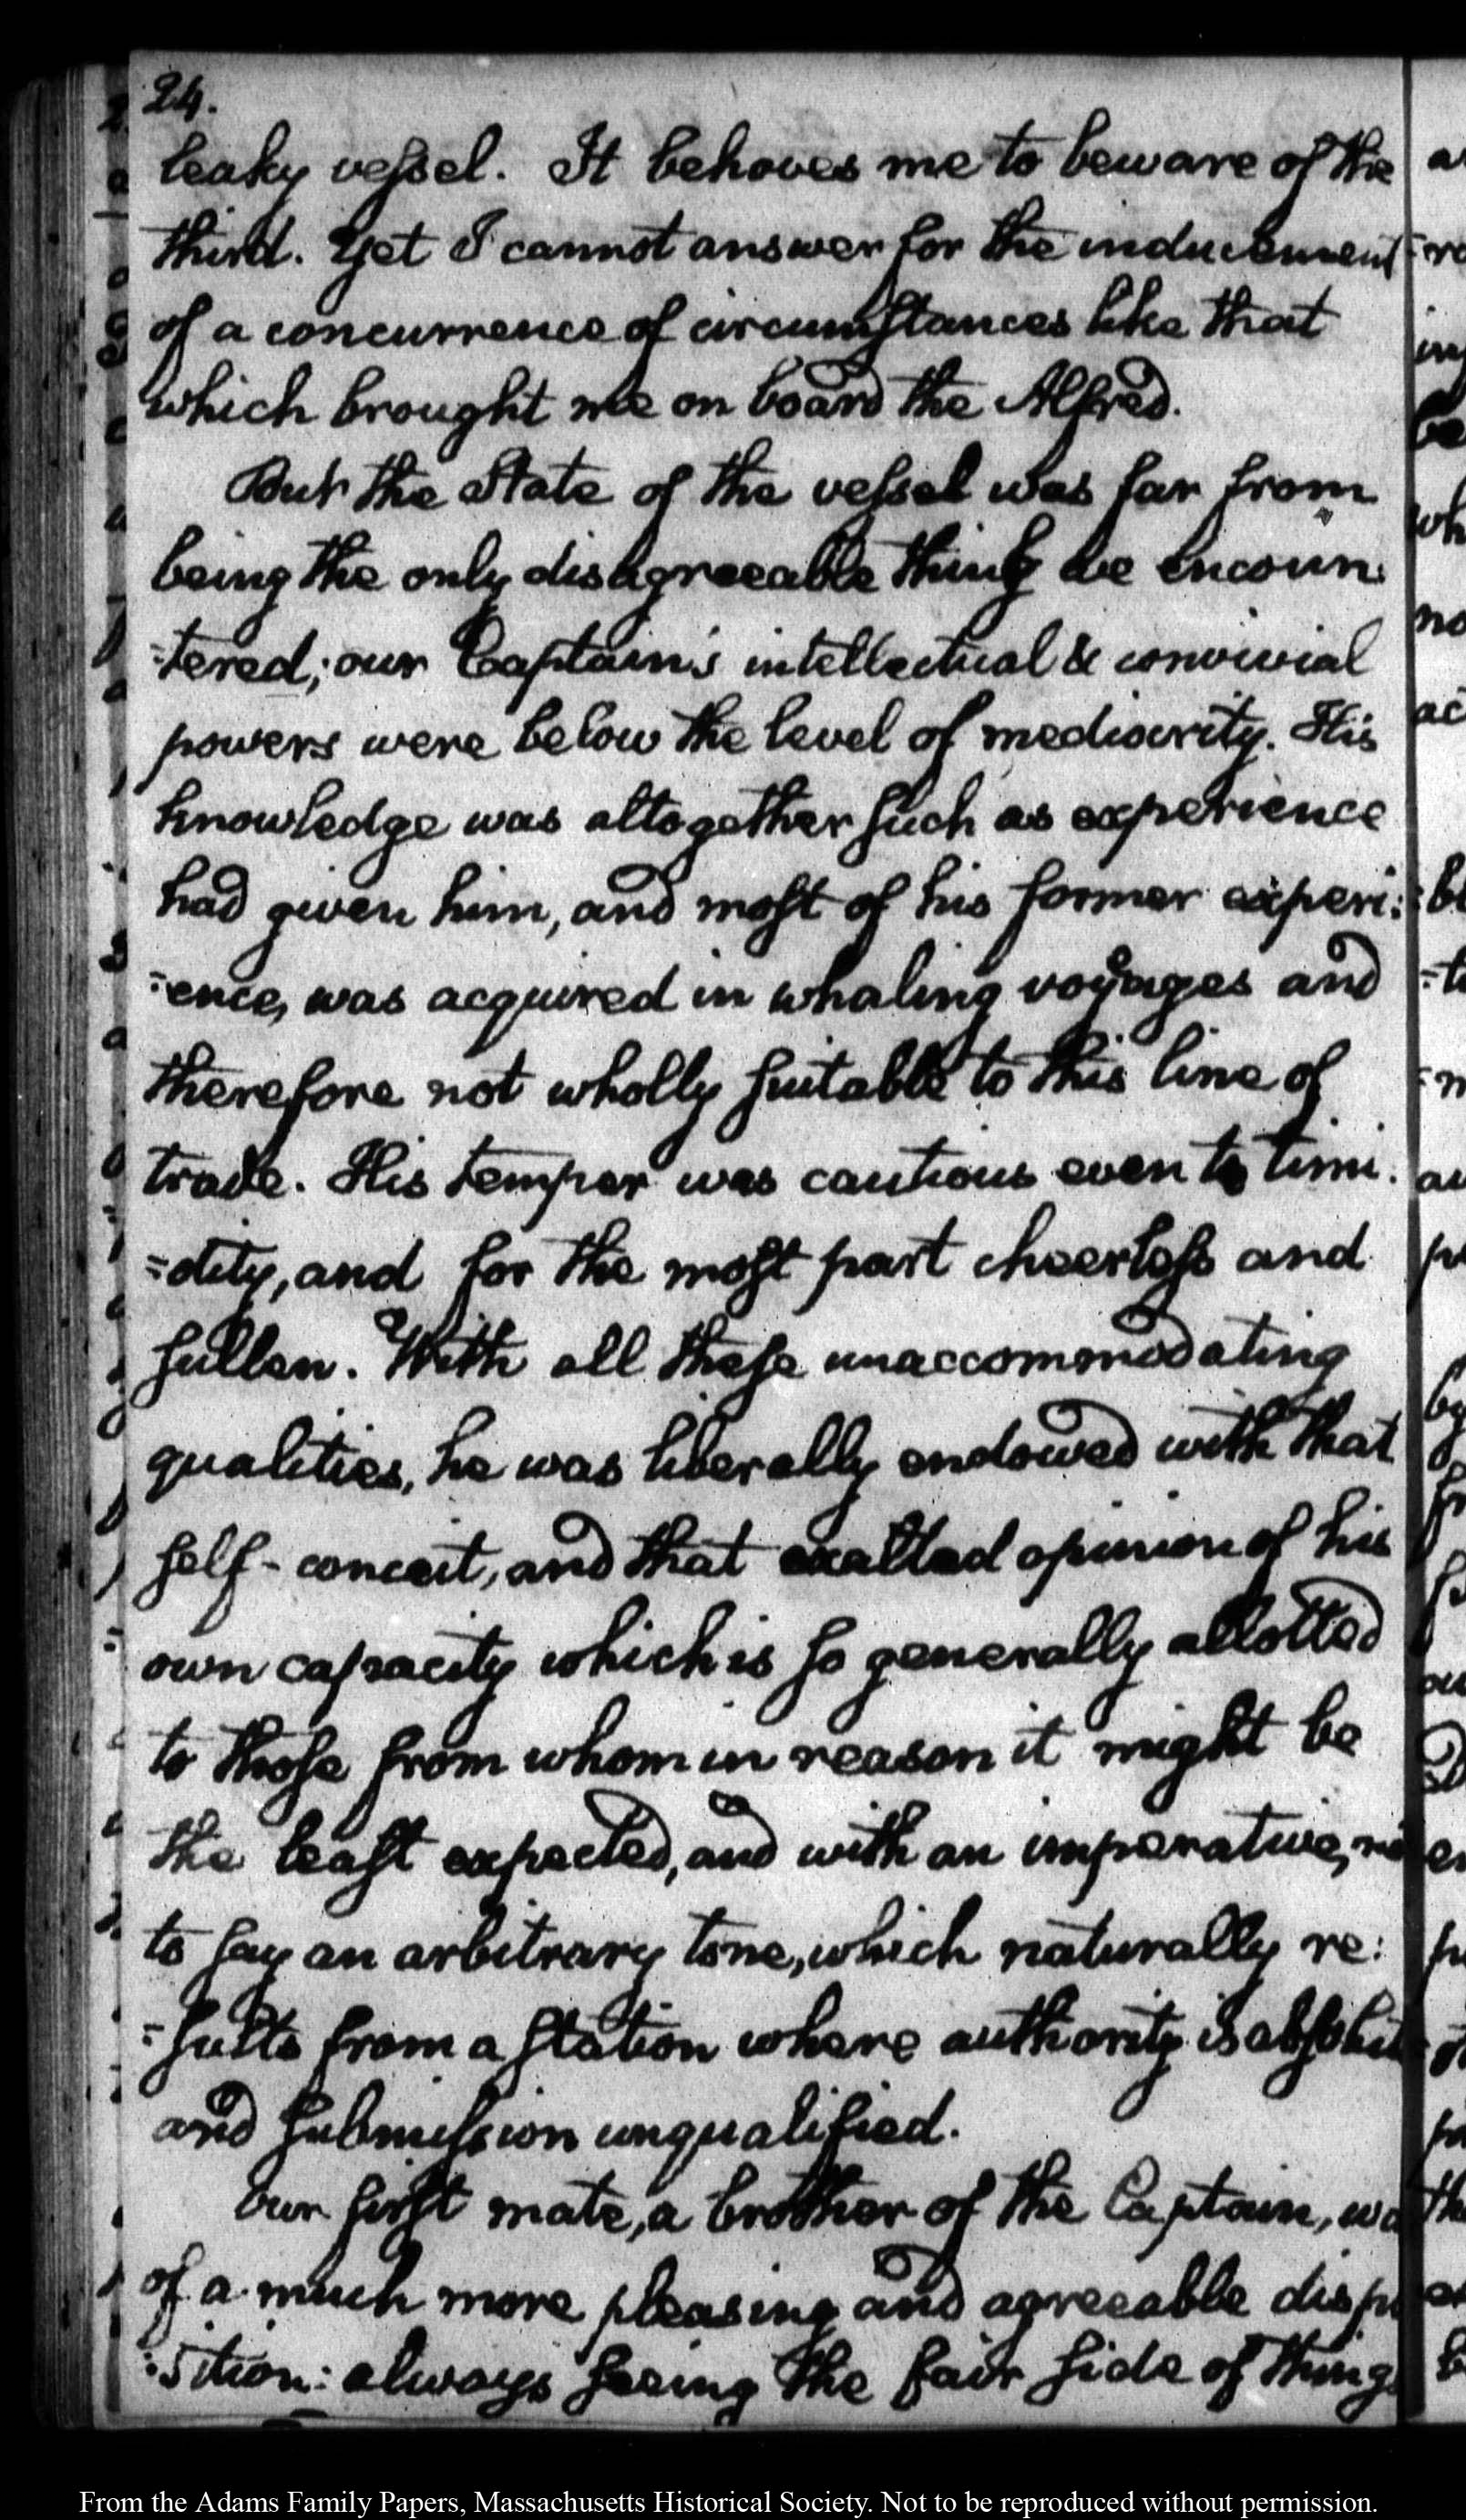 24.
leaky vessel. It behoves me to beware of the
third. Yet I cannot answer for the inducement
of a concurrence of circumstances like that
which brought me on board the Alfred.
But the State of the vessel was far from
being the only disagreeable thing we encoun:
-tered; our Captain's intellectual & convivial
powers were below the level of mediocrity. His
knowledge was altogether such as experience
had given him, and most of his former experi:
-ence, was acquired in whaling voyages and
therefore not wholly suitable to this line of
trade. His temper was cautious even to timi:
=dity, and for the most part cheerless and
sullen. With all these unaccommodating
qualities, he was liberally endowed with that
self-conceit, and that exalted opinion of his
own capacity which is so generally allotted
to those from whom in reason it might be
the least expected, and with an imperative,
to say an arbitrary tone, which naturally re:
=sults from a station where authority is absolute
and submission unqualified.
Our first mate, a brother of the Captain, wa
of a much more pleasing and agreeable dispo
:sition: always seeing the fair side of things
From the Adams Family Papers, Massachusetts Historical Society. Not to be reproduced without permission.